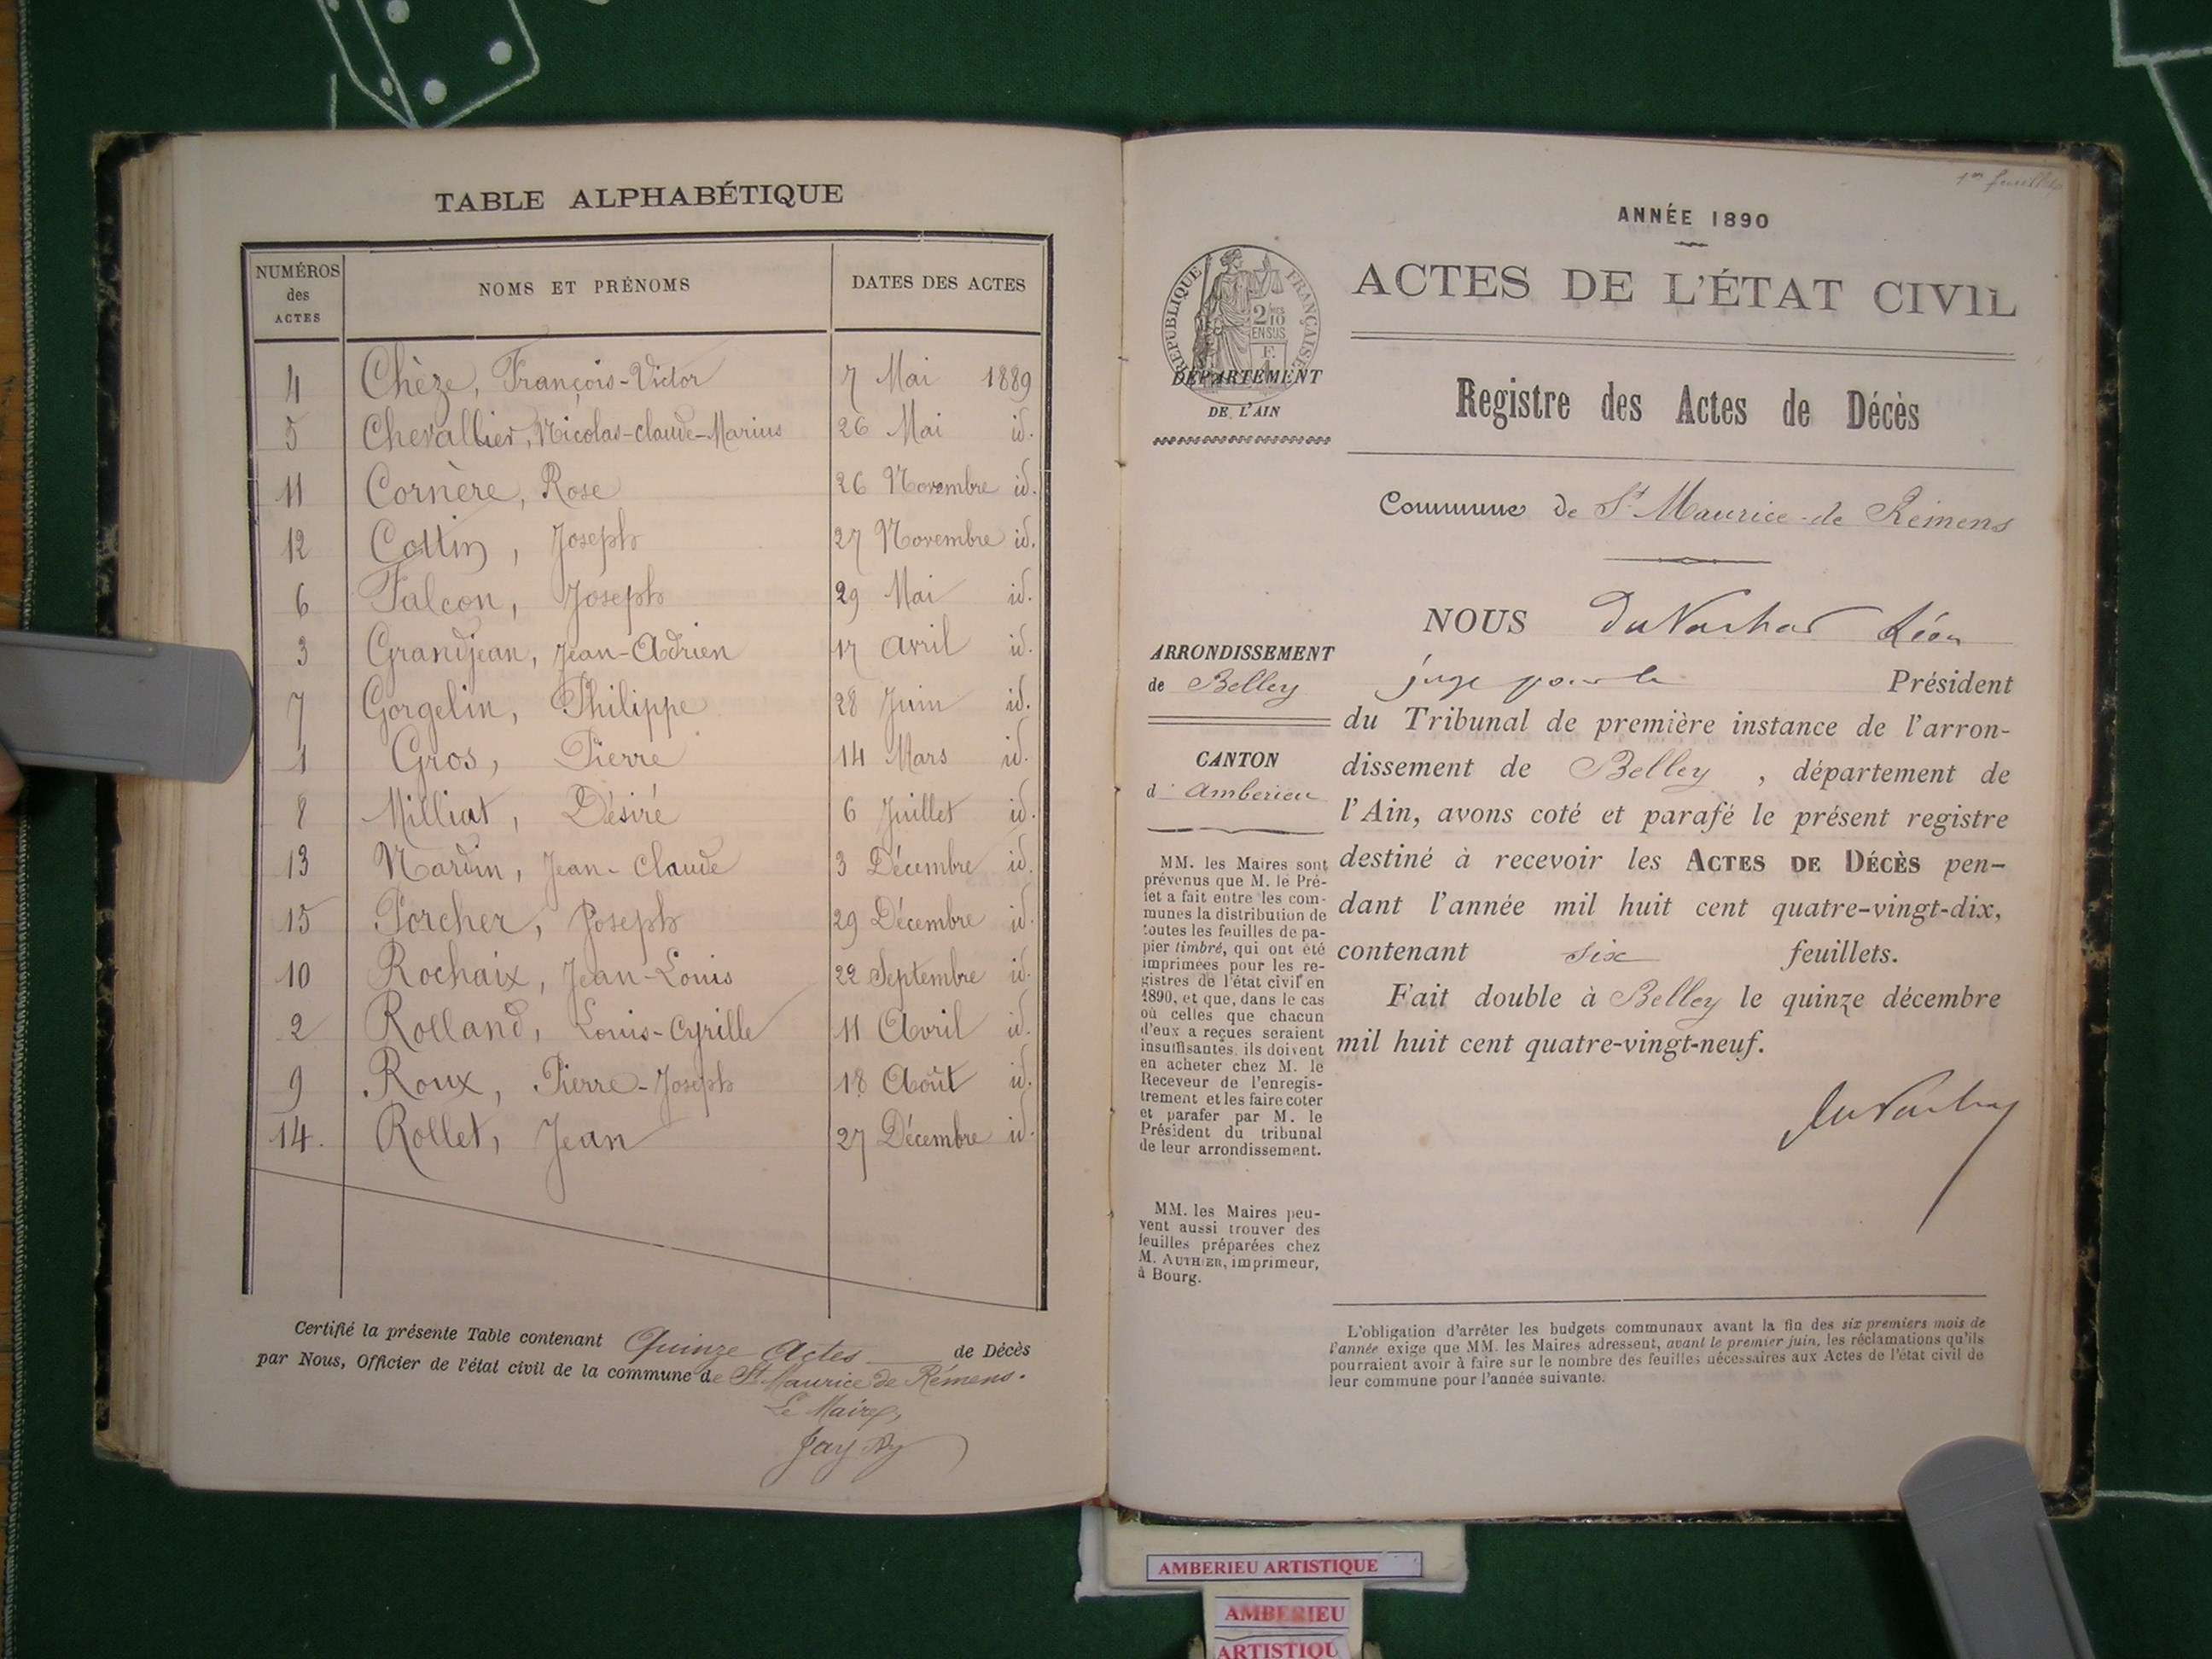 TABLE ALPHABÉTIQUE
NUMÉROS des ACTES NOMS ET PRÉNOMS DATES DES ACTES
4 Chèze, François-Victor 7 Mai 1889
5 Chevallier, Nicolas-claude-Marius 26 Mai id.
11 Cornère, Rose 26 Novembre id.
12 Cottin, Joseph 27 Novembre id.
6 Falcon, Joseph 29 Mai id.
3 Grandjean, Jean-Adrien 17 avril id.
7 Gorgelin, Philippe 28 Juin id.
1 Gros, Pierre 14 Mars id.
8 Milliat, Désiré 6 Juillet id.
13 Nardin, Jean-Claude 3 Décembre id.
15 Porcher, Joseph 29 Décembre id.
10 Rochaix, Jean-Louis 22 Septembre id.
2 Rolland, Louis-Cyrille 11 Avril id.
9 Roux, Pierre-Joseph 18 Août id.
14. Rollet, Jean 27 Décembre id.
Certifié la présente Table contenant Quinze Actes de Décès
par Nous, Officier de l'état civil de la commune de St Maurice de Rémens.
Le Maire,
1er feuillet
ANNÉE 1890
RÉPUBLIQUE FRANÇAISE
2/10 EN SUS
ACTES DE L'ÉTAT CIVIL
DÉPARTEMENT
DE L'AIN
Registre des Actes de Décès
Commune de St Maurice-de Rémens
ARRONDISSEMENT
de Belley
CANTON
d'Amberieu
MM. les Maires sont
prévenus que M. le Pré-
fet a fait entre les com-
munes la distribution de
toutes les feuilles de pa-
pier timbré, qui ont été
imprimées pour les re-
gistres de l'état civil en
1890, et que, dans le cas
où celles que chacun
d'eux a reçues seraient
insuffisantes, ils doivent
en acheter chez M. le
Receveur de l'enregis-
trement et les faire coter
et parafer par M. le
Président du tribunal
de leur arrondissement.
MM. les Maires peu-
vent aussi trouver des
feuilles préparées chez
M. AUTHIER, imprimeur,
à Bourg.
NOUS Léon
juge pour le Président
du Tribunal de première instance de l'arron-
dissement de Belley, département de
l'Ain, avons coté et parafé le présent registre
destiné à recevoir les ACTES DE DÉCÈS pen-
dant l'année mil huit cent quatre-vingt-dix,
contenant six feuillets.
Fait double à Belley le quinze décembre
mil huit cent quatre-vingt-neuf.
L'obligation d'arrêter les budgets communaux avant la fin des six premiers mois de
l'année exige que MM. les Maires adressent, avant le premier juin, les réclamations qu'ils
pourraient avoir à faire sur le nombre des feuilles nécessaires aux Actes de l'état civil de
leur commune pour l'année suivante.
AMBERIEU ARTISTIQUE
AMBERIEU
ARTISTIQU